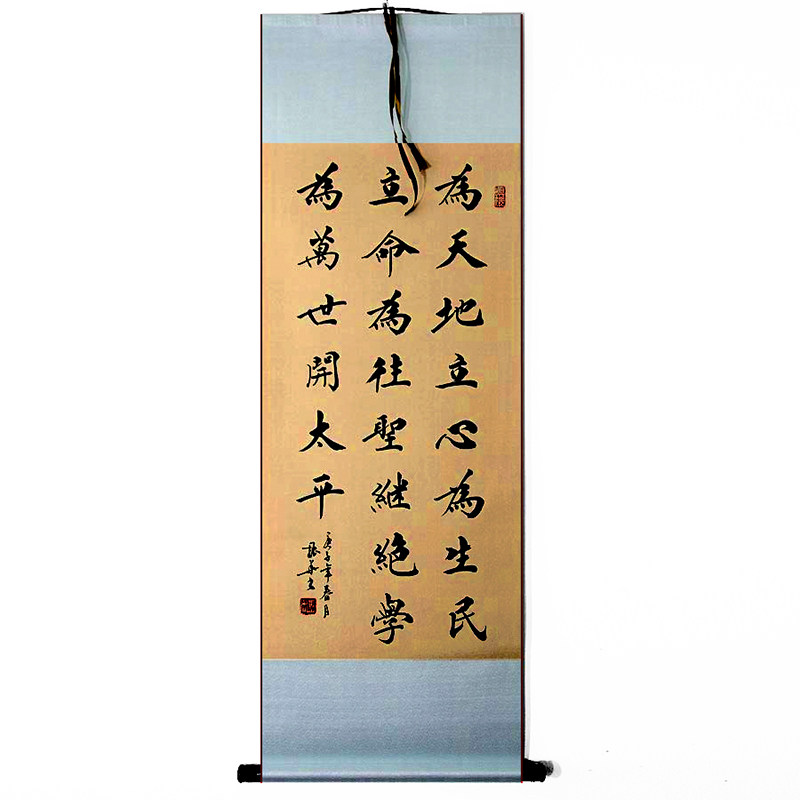 為天地立心為生民
立命為往聖継絶學
為萬世開太平
庚子年春月